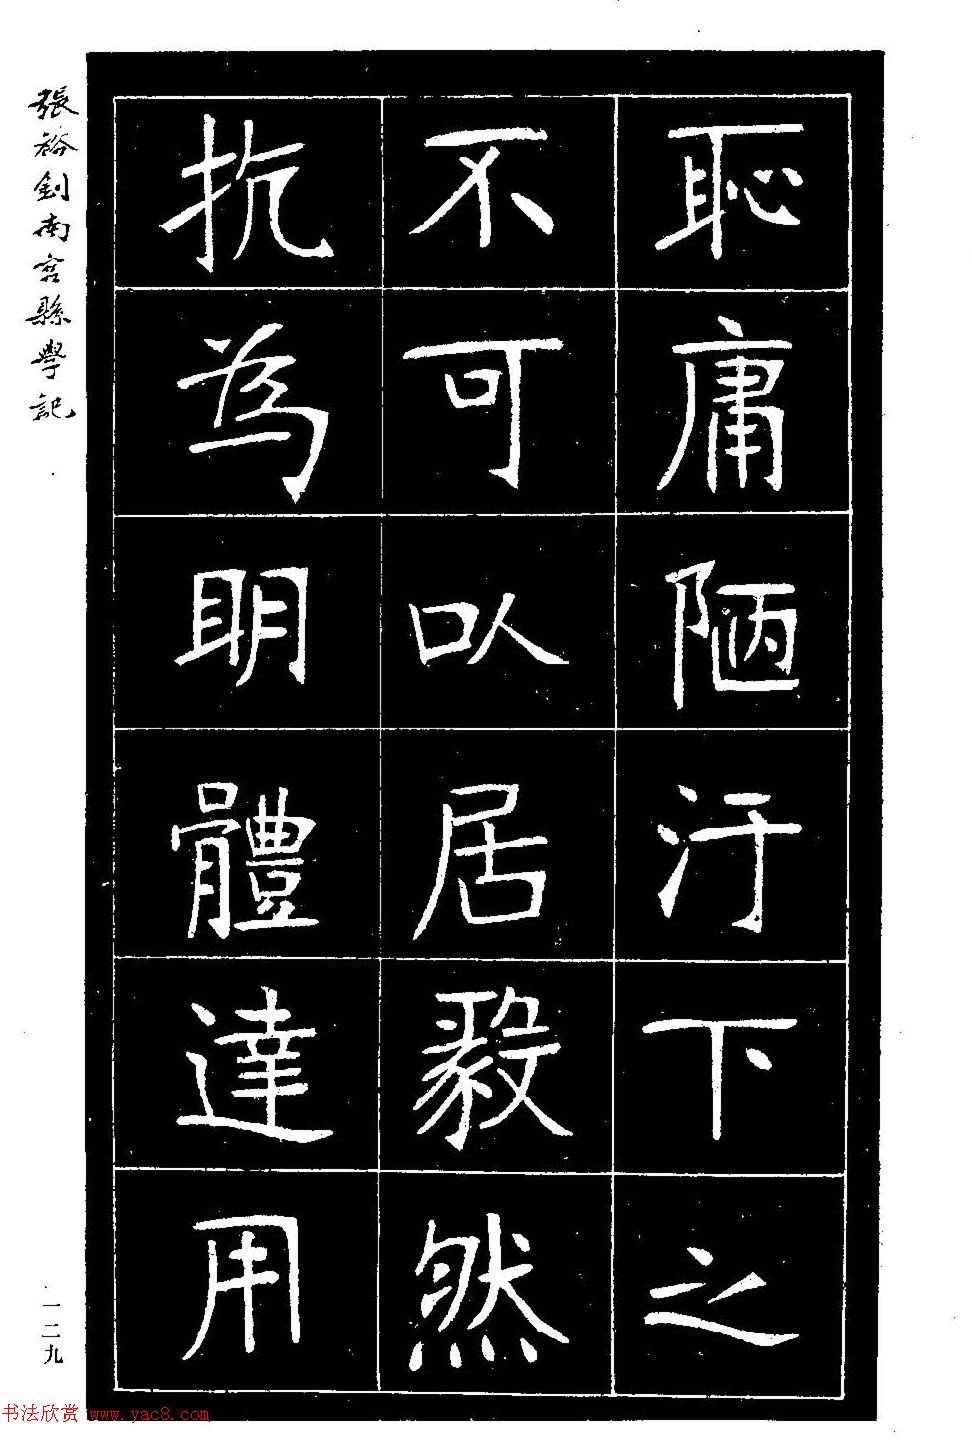 恥庸陋汙下之
不可以居毅然
抗為明體達用
張裕釗南宮縣學記
一二九
书法欣赏 www.yac8.com